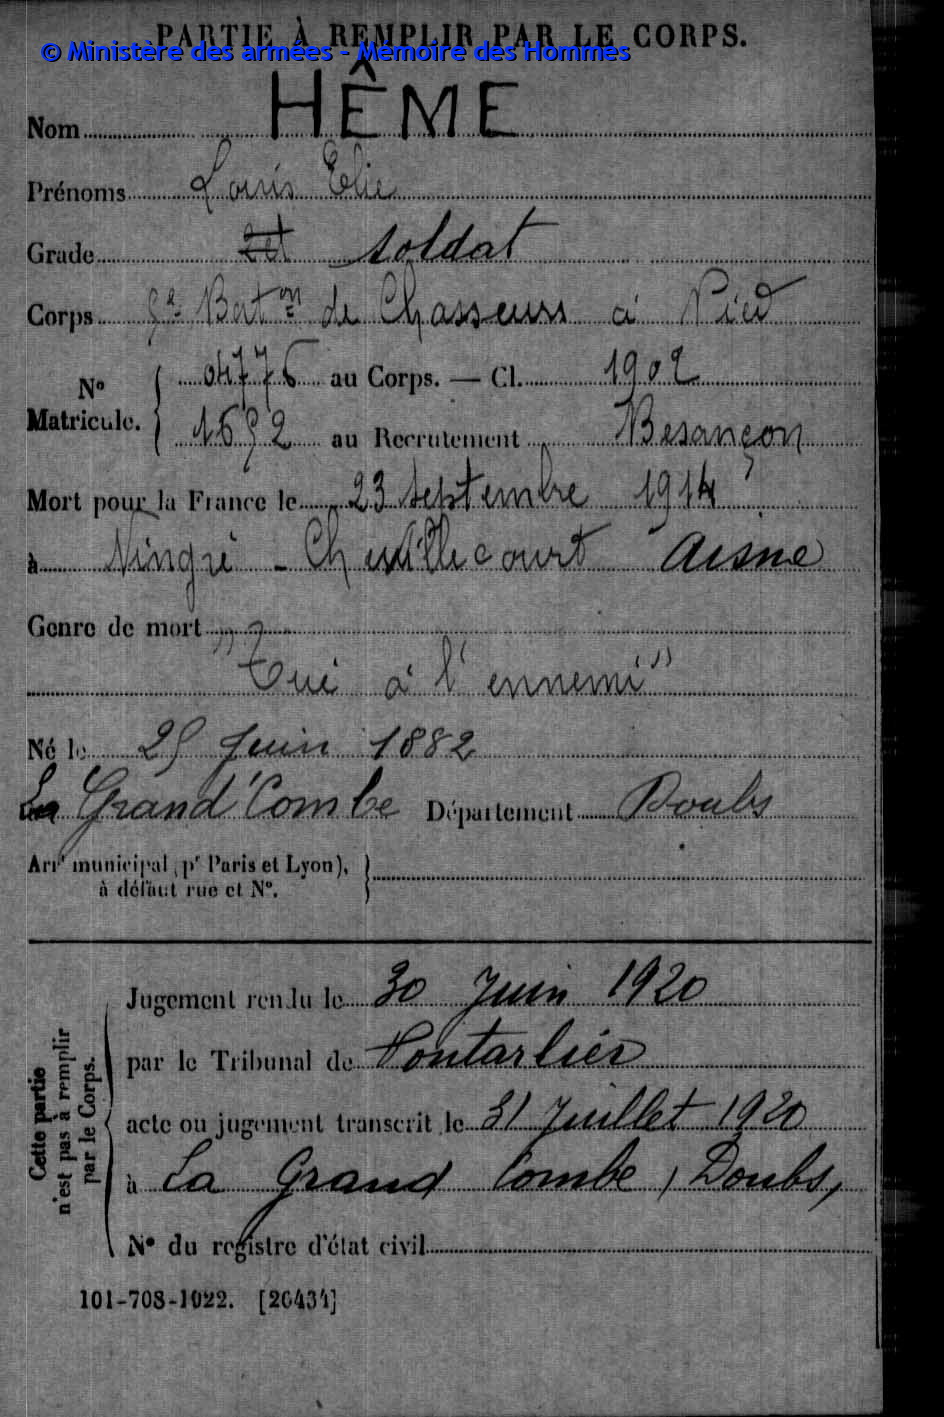 PARTIE À REMPLIR PAR LE CORPS.
© Ministère des armées - Mémoire des Hommes
Nom HÊME
Prénoms Louis Elie
Grade soldat
Corps 5e Baton de Chasseurs à Pied
No Matricule. { 04776 au Corps. — Cl. 1902
1692 au Recrutement Besançon
Mort pour la France le 23 septembre 1914
à Vingré - Chevillecourt Aisne
Genre de mort
"Tué à l'ennemi"
Né le 25 Juin 1882
La Grand'Combe Département Doubs
Arrt municipal (pr Paris et Lyon),
à défaut rue et No.
Cette partie n'est pas à remplir par le Corps.
Jugement rendu le 30 Juin 1920
par le Tribunal de Pontarlier
acte ou jugement transcrit le 31 Juillet 1920
à La Grand Combe (Doubs)
No du registre d'état civil
101-708-1022. [26434]